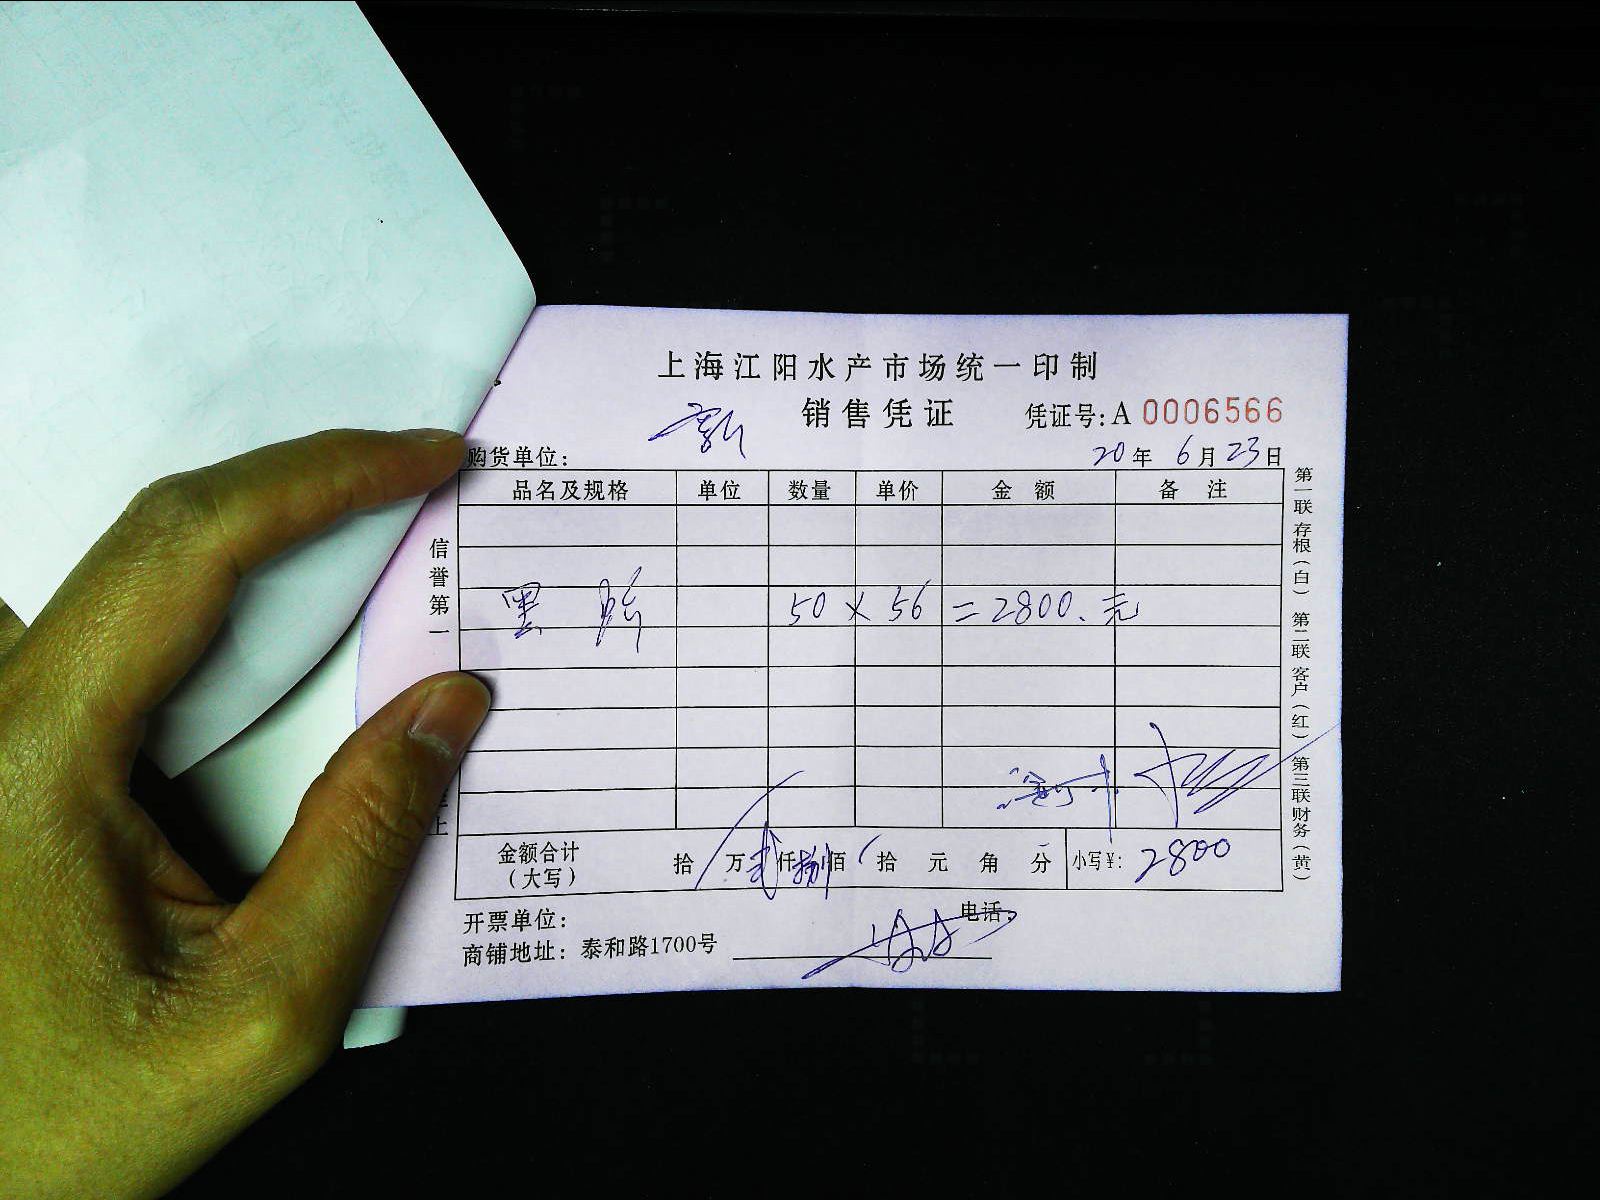 上海江阳水产市场统一印制
销售凭证 凭证号:A 0006566
购货单位: 20年 6月 23日
品名及规格 单位 数量 单价 金额 备注
黑 50 × 56 = 2800.元
金额合计(大写) 拾 万 贰仟 捌佰 拾 元 角 分 小写¥: 2800
开票单位: 电话:
商铺地址: 泰和路1700号
信誉第一
上
第一联存根(白) 第二联客户(红) 第三联财务(黄)